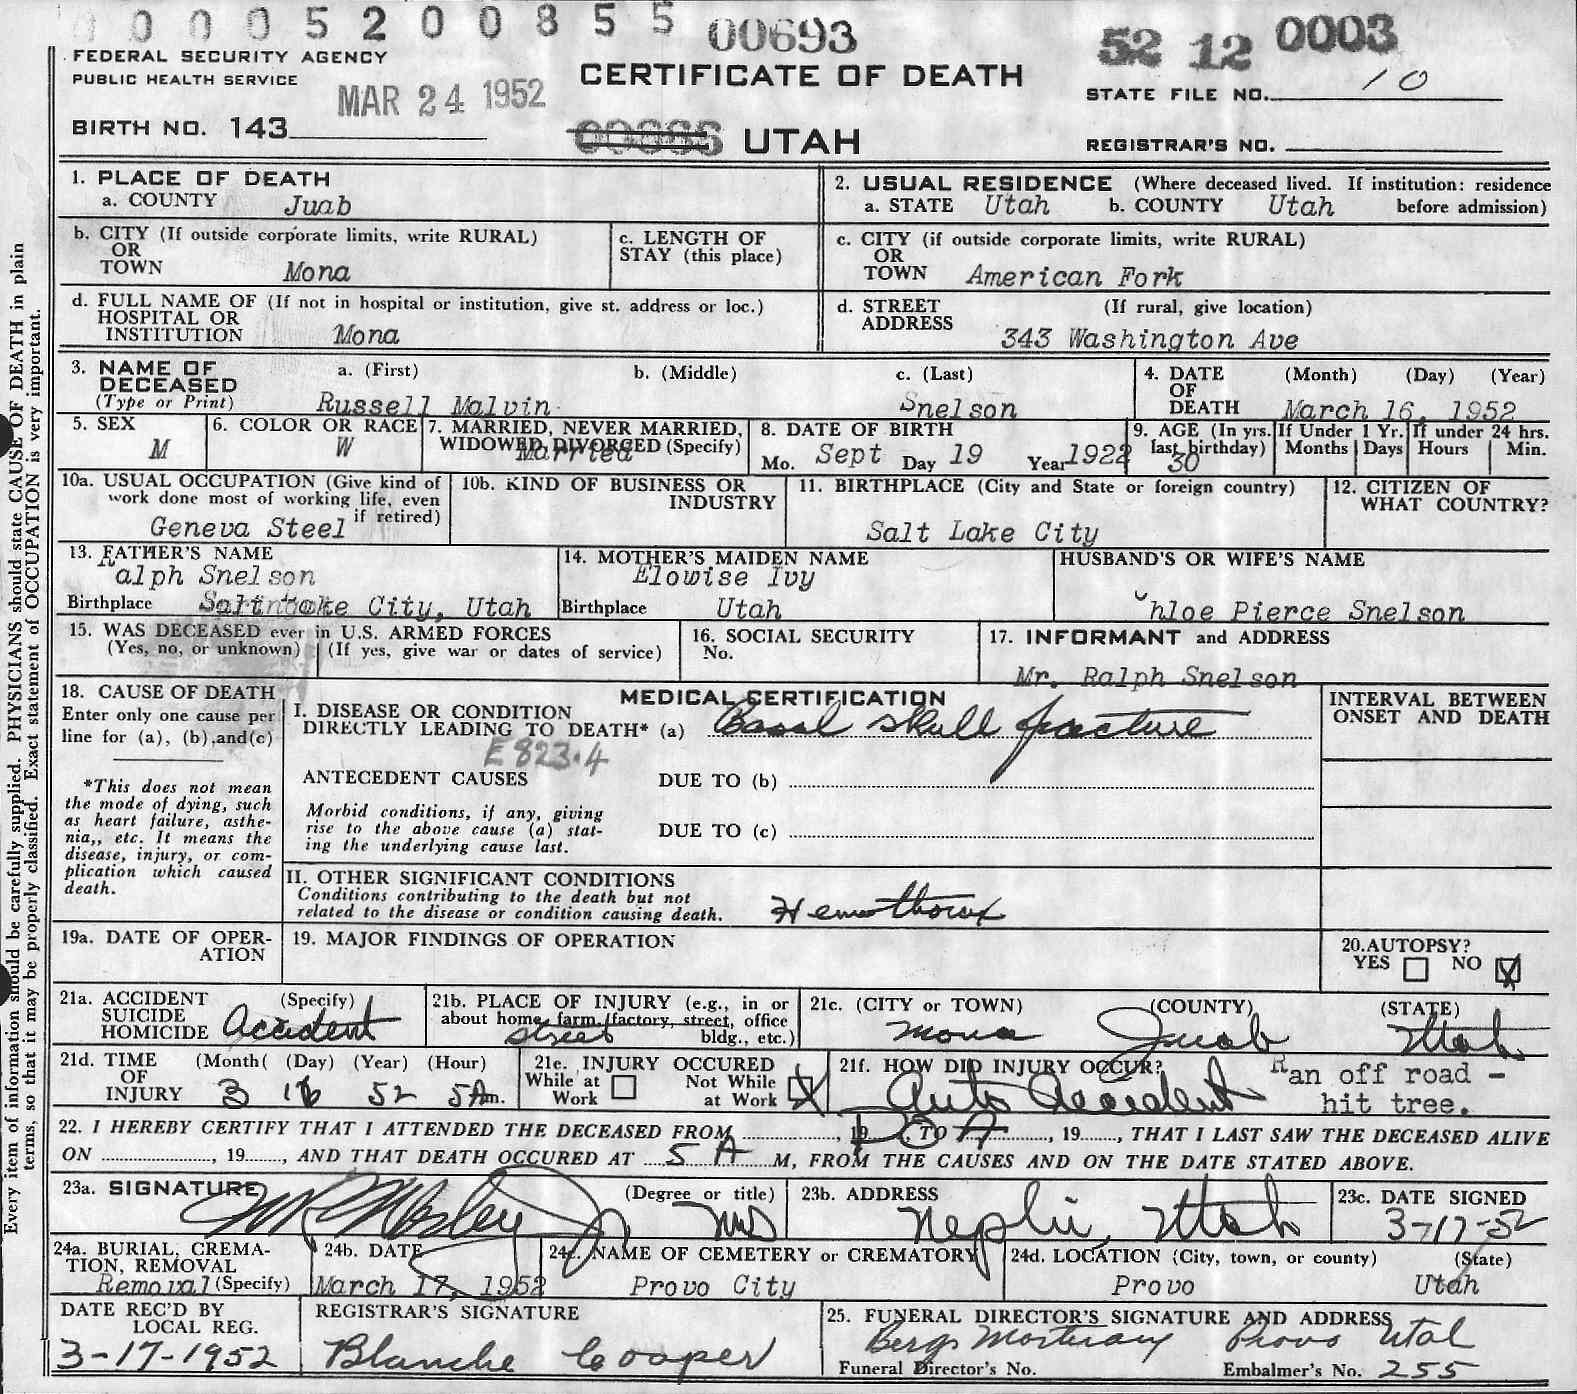 0 0 0 0 5 2 0 0 8 5 5 00693 52 12 0003
FEDERAL SECURITY AGENCY
PUBLIC HEALTH SERVICE
MAR 24 1952
CERTIFICATE OF DEATH
STATE FILE NO. 10
BIRTH NO. 143
UTAH
REGISTRAR'S NO.
1. PLACE OF DEATH
a. COUNTY Juab
2. USUAL RESIDENCE (Where deceased lived. If institution: residence
a. STATE Utah b. COUNTY Utah before admission)
b. CITY (If outside corporate limits, write RURAL)
OR
TOWN Mona
c. LENGTH OF
STAY (this place)
c. CITY (if outside corporate limits, write RURAL)
OR
TOWN American Fork
d. FULL NAME OF (If not in hospital or institution, give st. address or loc.)
HOSPITAL OR
INSTITUTION Mona
d. STREET (If rural, give location)
ADDRESS
343 Washington Ave
3. NAME OF a. (First) b. (Middle) c. (Last)
DECEASED
(Type or Print) Russell Malvin Snelson
4. DATE (Month) (Day) (Year)
OF
DEATH March 16, 1952
5. SEX
M
6. COLOR OR RACE
W
7. MARRIED, NEVER MARRIED,
WIDOWED, DIVORCED (Specify)
Married
8. DATE OF BIRTH
Mo. Sept Day 19 Year 1922
9. AGE (In yrs.
last birthday)
30
If Under 1 Yr.
Months Days
If under 24 hrs.
Hours Min.
10a. USUAL OCCUPATION (Give kind of
work done most of working life, even
if retired)
Geneva Steel
10b. KIND OF BUSINESS OR
INDUSTRY
11. BIRTHPLACE (City and State or foreign country)
Salt Lake City
12. CITIZEN OF
WHAT COUNTRY?
13. FATHER'S NAME
Ralph Snelson
Birthplace Salt Lake City, Utah
14. MOTHER'S MAIDEN NAME
Elowise Ivy
Birthplace Utah
HUSBAND'S OR WIFE'S NAME
Chloe Pierce Snelson
15. WAS DECEASED ever in U.S. ARMED FORCES
(Yes, no, or unknown) (If yes, give war or dates of service)
16. SOCIAL SECURITY
No.
17. INFORMANT and ADDRESS
Mr. Ralph Snelson
18. CAUSE OF DEATH
Enter only one cause per
line for (a), (b), and (c)
*This does not mean
the mode of dying, such
as heart failure, asthe-
nia,, etc. It means the
disease, injury, or com-
plication which caused
death.
MEDICAL CERTIFICATION
I. DISEASE OR CONDITION
DIRECTLY LEADING TO DEATH* (a) Basal skull fracture
E823.4
ANTECEDENT CAUSES DUE TO (b)
Morbid conditions, if any, giving
rise to the above cause (a) stat-
ing the underlying cause last.
DUE TO (c)
INTERVAL BETWEEN
ONSET AND DEATH
II. OTHER SIGNIFICANT CONDITIONS
Conditions contributing to the death but not
related to the disease or condition causing death.
Hemothorax
19a. DATE OF OPER-
ATION
19. MAJOR FINDINGS OF OPERATION
20. AUTOPSY?
YES NO X
21a. ACCIDENT (Specify)
SUICIDE
HOMICIDE Accident
21b. PLACE OF INJURY (e.g., in or
about home, farm, factory, street, office
bldg., etc.)
street
21c. (CITY or TOWN) (COUNTY) (STATE)
Mona Juab Utah
21d. TIME (Month) (Day) (Year) (Hour)
OF
INJURY 3 16 52 5 A m.
21e. INJURY OCCURED
While at Work
Not While at Work X
21f. HOW DID INJURY OCCUR?
Auto Accident
Ran off road -
hit tree.
22. I HEREBY CERTIFY THAT I ATTENDED THE DECEASED FROM, 19, TO, 19, THAT I LAST SAW THE DECEASED ALIVE
DOA
ON, 19, AND THAT DEATH OCCURED AT 5 A M, FROM THE CAUSES AND ON THE DATE STATED ABOVE.
23a. SIGNATURE (Degree or title)
MD
23b. ADDRESS
Nephi, Utah
23c. DATE SIGNED
3-17-52
24a. BURIAL, CREMA-
TION, REMOVAL
Removal (Specify)
24b. DATE
March 17, 1952
24c. NAME OF CEMETERY or CREMATORY
Provo City
24d. LOCATION (City, town, or county) (State)
Provo Utah
DATE REC'D BY
LOCAL REG.
3-17-1952
REGISTRAR'S SIGNATURE
Blanche Cooper
25. FUNERAL DIRECTOR'S SIGNATURE AND ADDRESS
Bergs Mortuary Provo Utah
Funeral Director's No. Embalmer's No. 255
Every item of information should be carefully supplied. PHYSICIANS should state CAUSE OF DEATH in plain
terms, so that it may be properly classified. Exact statement of OCCUPATION is very important.